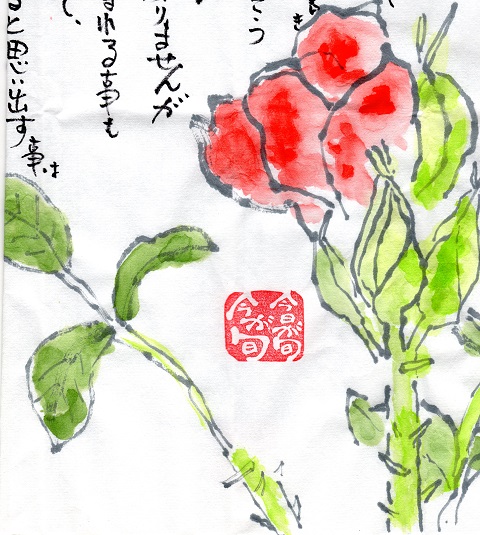 りませんが
れる事も
て、
ると思い出す
事は
今日が旬
今が旬